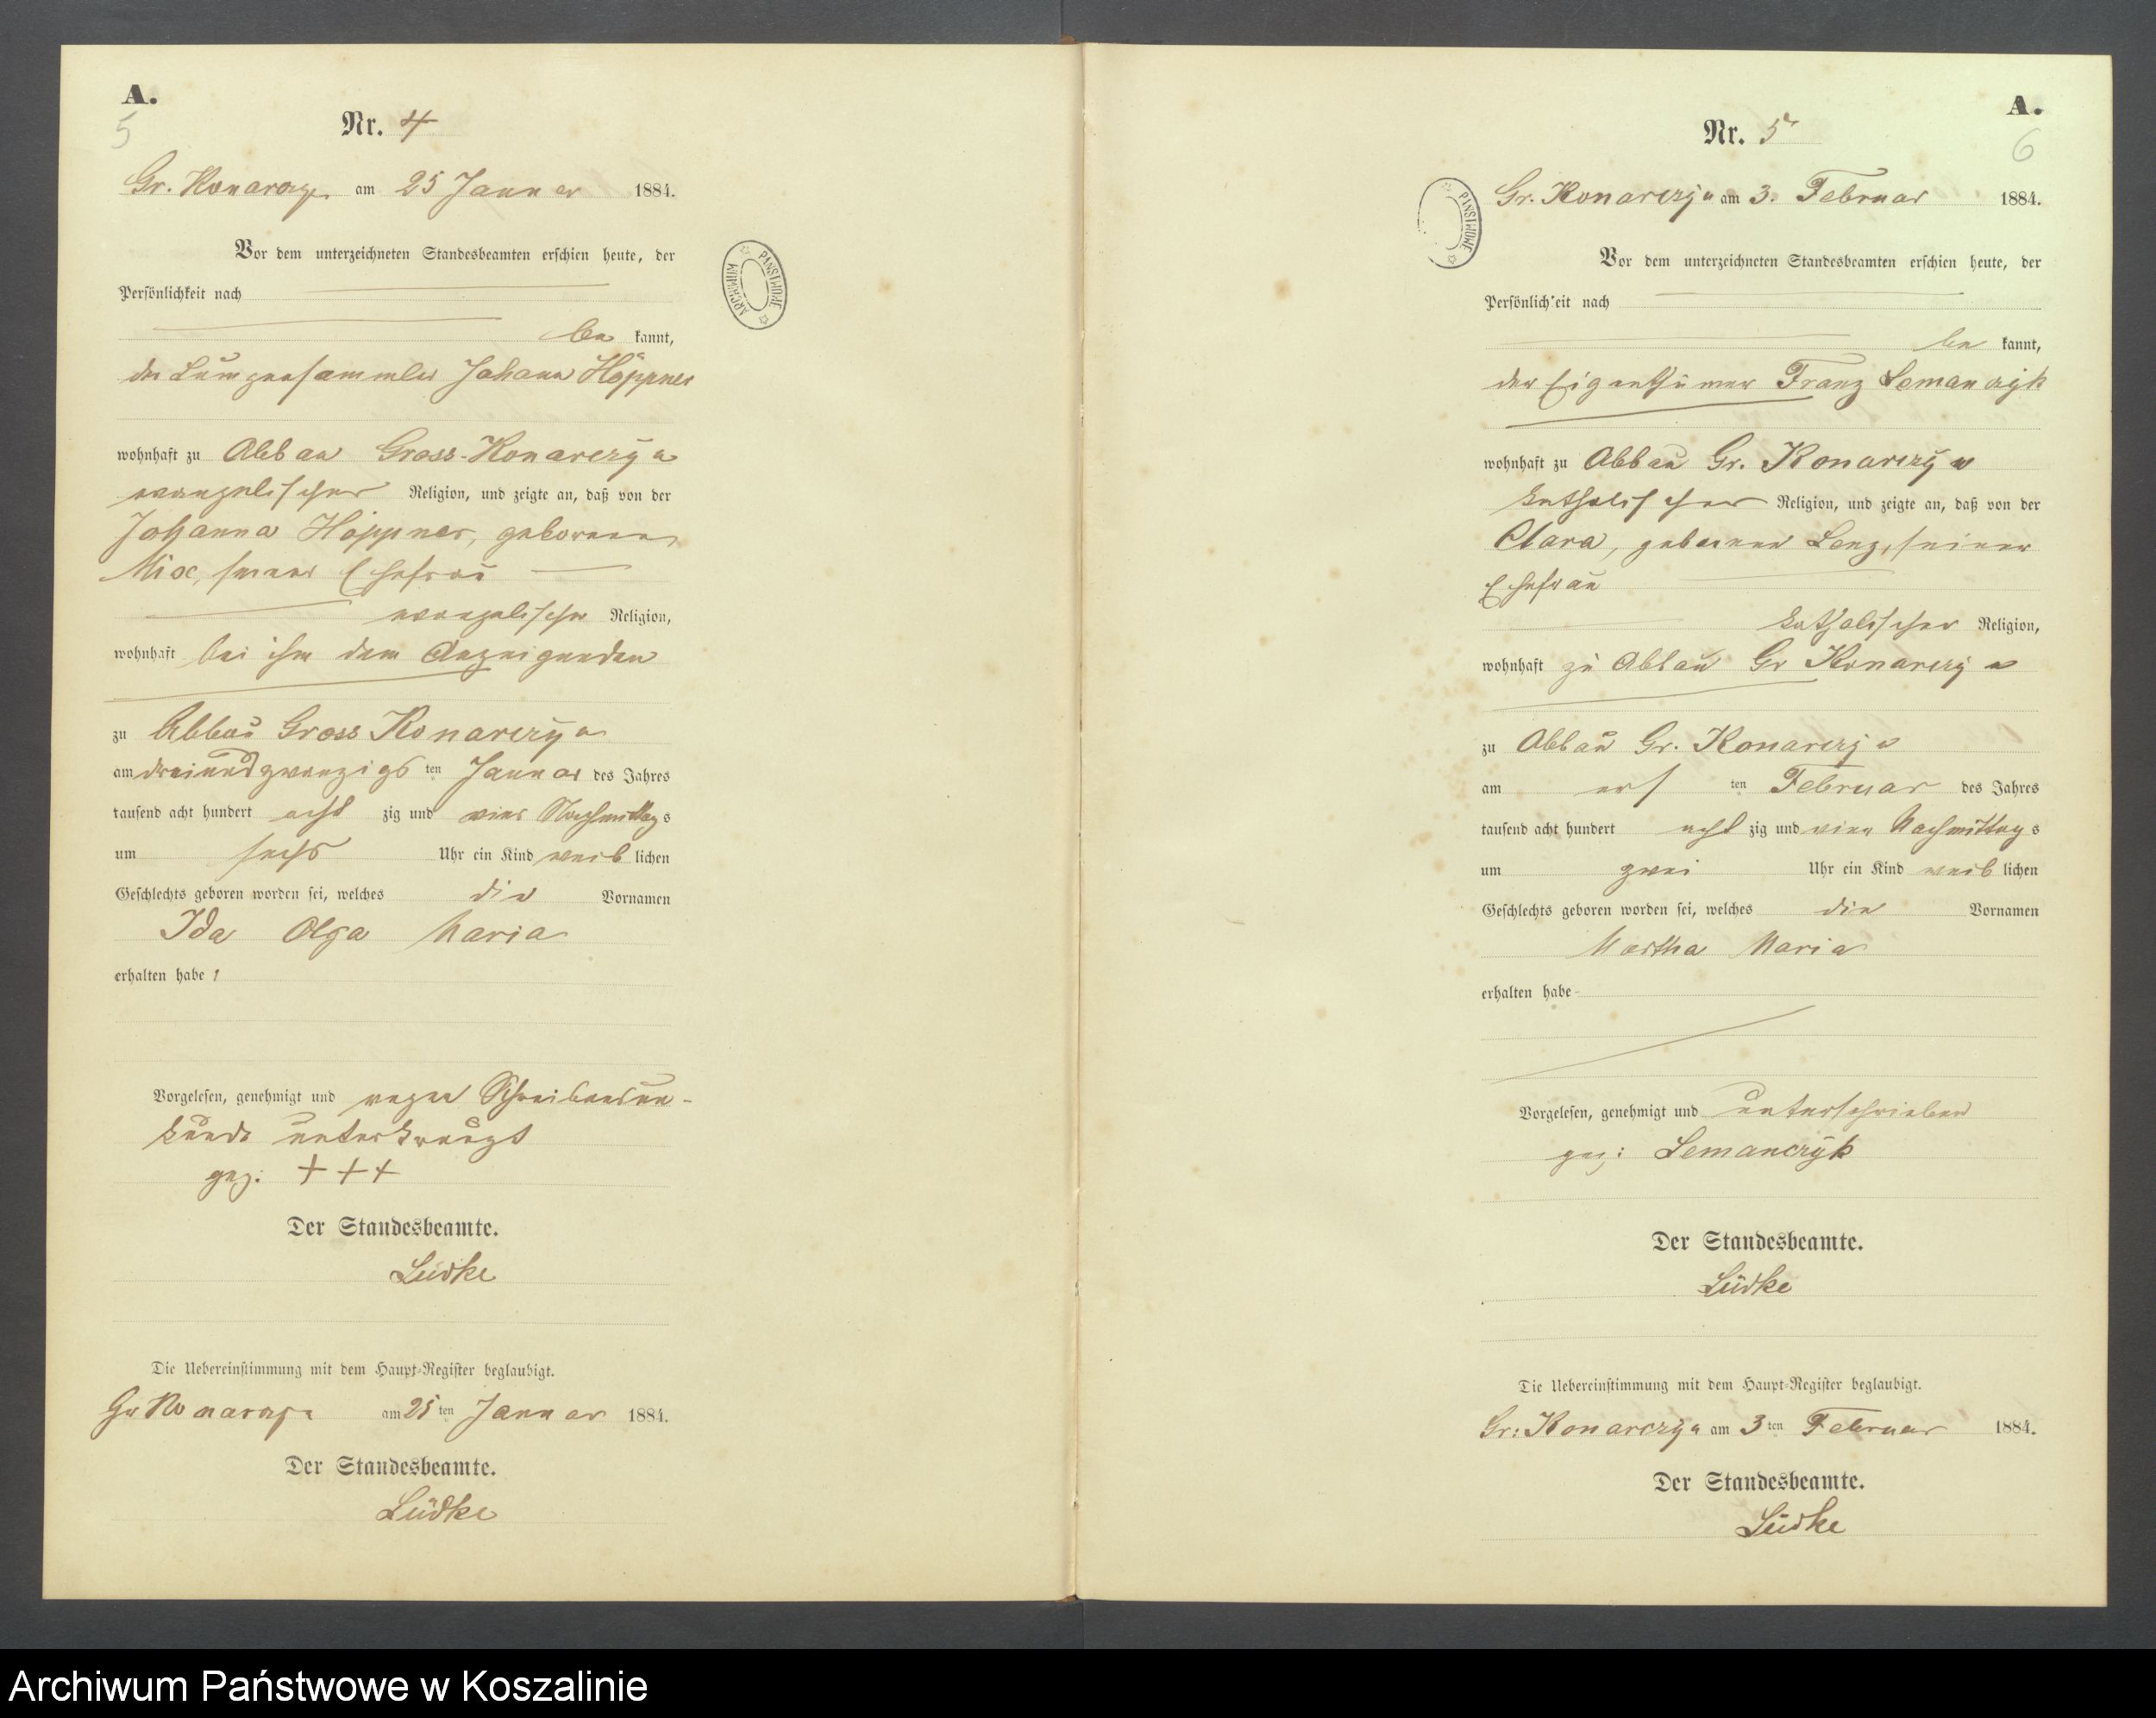 A.
5
Nr. 4
Gr. Konarczyn am 25 Januar 1884.
Vor dem unterzeichneten Standesbeamten erschien heute, der
Persönlichkeit nach
be kannt,
der Lumpensammler Johann Höppner
wohnhaft zu Abbau Gross-Konarczyn
evangelischer Religion, und zeigte an, daß von der
Johanna Höppner, geborenen
seiner Ehefrau
evangelischer Religion,
wohnhaft bei ihm dem Anzeigenden
zu Abbau Gross Konarczyn
am dreiundzwanzigs ten Januar des Jahres
tausend acht hundert acht zig und vier Nachmittags
um sechs Uhr ein Kind weib lichen
Geschlechts geboren worden sei, welches die Vornamen
Ida Olga Maria
erhalten habe
Vorgelesen, genehmigt und wegen Schreibensun-
kunde unterkreuzt
gez: +++
Der Standesbeamte.
Lüdke
Die Uebereinstimmung mit dem Haupt-Register beglaubigt.
Gr Konarczyn am 25 ten Januar 1884.
Der Standesbeamte.
Lüdke
A.
6
Nr. 5
Gr. Konarczyn am 3. Februar 1884.
PAŃSTWOWE
ARCHIWUM PAŃSTWOWE
Vor dem unterzeichneten Standesbeamten erschien heute, der
Persönlichkeit nach
be kannt,
der Eigenthümer Franz Lemanczyk
wohnhaft zu Abbau Gr. Konarczyn
katholischer Religion, und zeigte an, daß von der
Clara, geborenen Lenz, seiner
Ehefrau
katholischer Religion,
wohnhaft zu Abbau Gr Konarczyn
zu Abbau Gr. Konarczyn
am ers ten Februar des Jahres
tausend acht hundert acht zig und vier Nachmittags
um zwei Uhr ein Kind weib lichen
Geschlechts geboren worden sei, welches die Vornamen
Martha Maria
erhalten habe
Vorgelesen, genehmigt und unterschrieben
gez: Lemanczyk
Der Standesbeamte.
Lüdke
Die Uebereinstimmung mit dem Haupt-Register beglaubigt.
Gr: Konarczyn am 3 ten Februar 1884.
Der Standesbeamte.
Lüdke
Archiwum Państwowe w Koszalinie